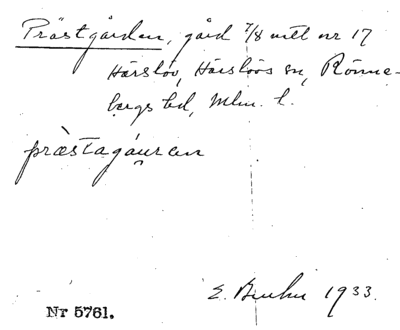 Prästgården, gård 7/8 mtl nr 17
Härslöv, Härslövs sn, Rönne-
bergs hd, Mlm. l.
præstagáuren
E. 1933.
Nr 5761.